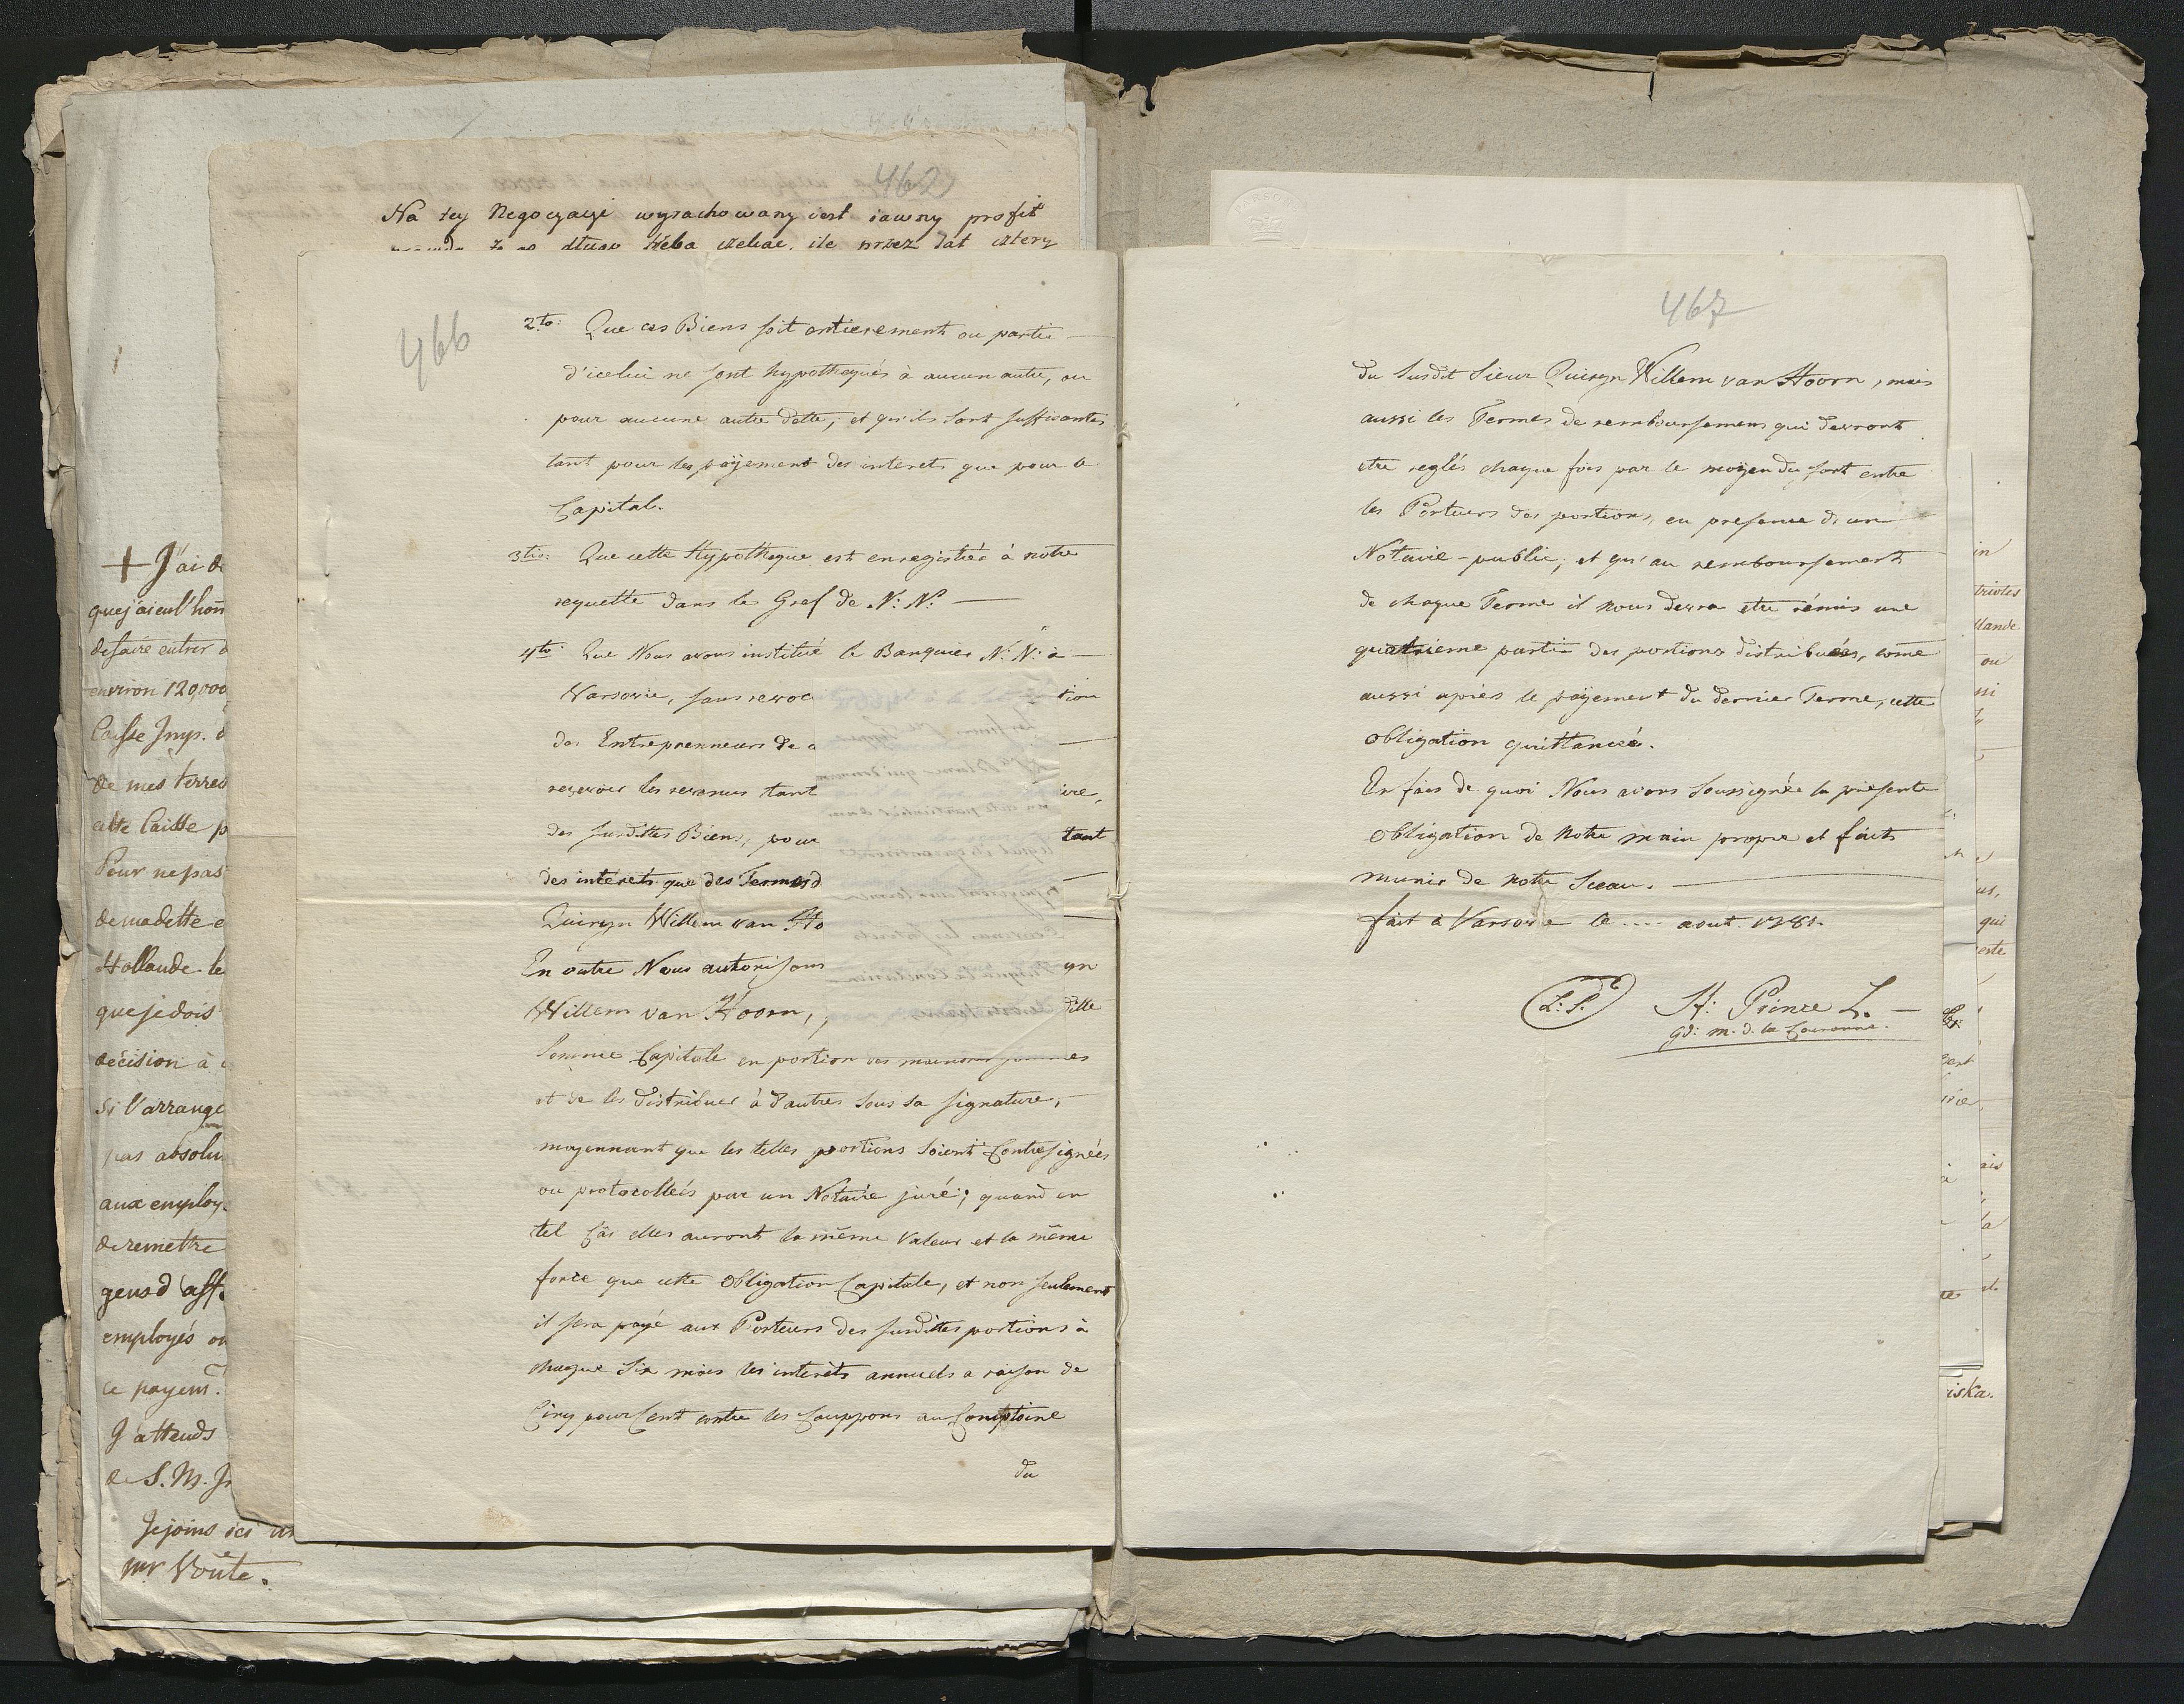 462
Na tey Negocyacyi wyrachowany iest iawny profit
długo trzeba czekac, ile przez lat cztery
+ J'ai d
que j'ai eu l'hon
de faire entrer d
environ 120,000
Caisse Imp. d
de mes terres
cette Caisse p
Pour ne pas
de ma dette e
Hollande le
que je dois
décision à
si l'arrange
pas absolu
aux employ
de remettre
gens d'aff.
employés ou
ce payem.
J'attends
de S. M. J
Je joins ici un
mr Voute.
466
2.to: Que ces Biens soit entierement ou partie
d'icelui ne sont hypothequés à aucun autre, ou
pour aucune autre dette; et qu'ils sont suffisantes
tant pour les payement des interets que pour le
Capital.
3tio: Que cette Hypotheque est enregistrée à notre
requette dans les Gref de N: N: —
4to: Que Nous avons institué le Banquier N: N: à
Varsovie, sans revoc tion
des Entreprenneurs de
recevoir les revenus tant ire,
des susdittes Biens, pour tant
des interets que des Termes d
Quiryn Willem van Ho
En outre Nous autorisons yn
Willem van Hoorn, ditte
Somme Capitale en portion des moindres sommes
et de les distribuer à d'autres sous sa signature,
moyennant que les telles portions soient Contresignées
ou protocollées par un Notaire juré; quand en
tel Câs elles auront la même Valeur et la même
force que cette Obligation Capitale, et non seulement
il sera payé aux Porteurs des susdittes portions à
chaque Six mois les interêts annuels a raison de
Cinq pour Cent contre les Couppons au Comptoire
du
467
du Susdit Sieur Quiryn Willem van Hoorn, mais
aussi les Termes de remboursemens qui devront
etre reglés chaque fois par le moyen du sort entre
les Porteurs des portions, en presence d'un
Notaire-public; et qu'au remboursement
de chaque Terme il nous devra etre rémis une
quatrieme partie des portions distribuées, come
aussi apres le payement du dernier Terme, cette
Obligation quittancée.
En fais de quoi Nous avons soussignée la présente
Obligation de Notre main propre et faits
munir de notre Sceau.
fait à Varsovie le .... aout. 1781.
(L: S:) St: Prince L. —
gd: m. d. la Couronne.
in
triotes
llande
ou
ni
us,
qui
este
ais
la
iska.